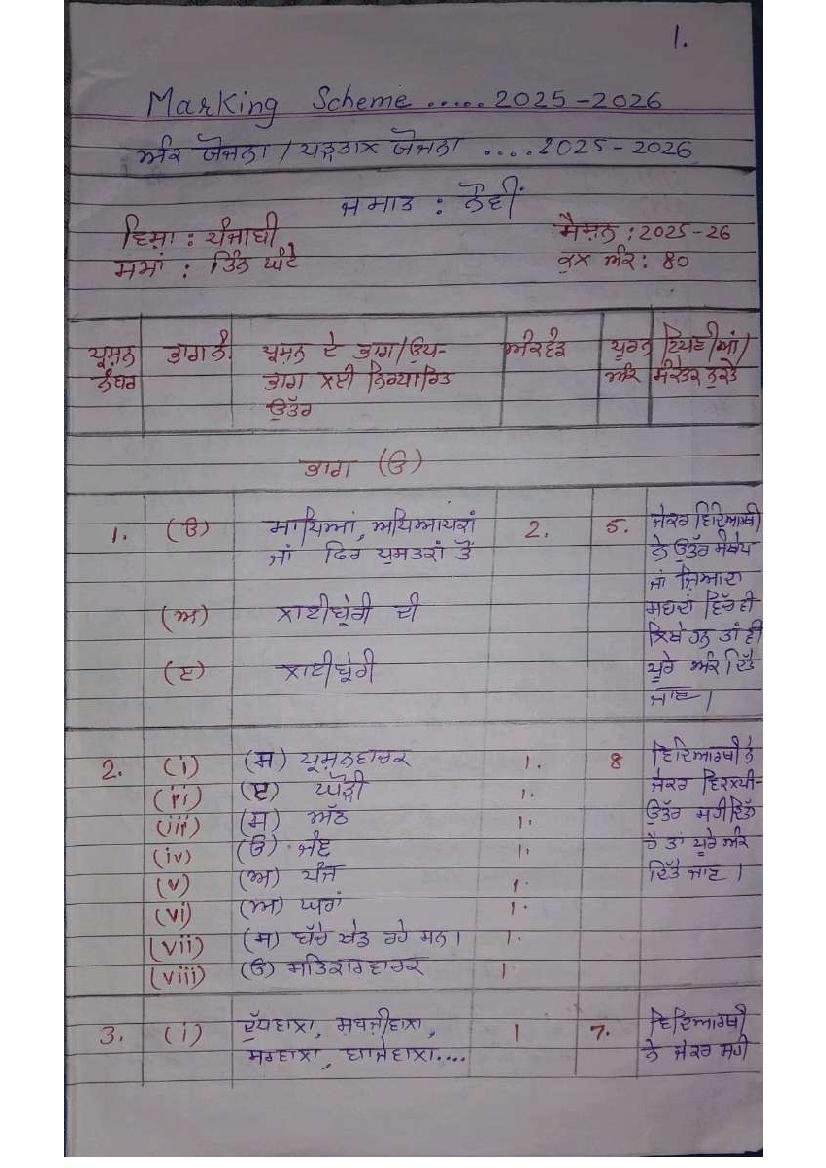 1.
Marking Scheme ..... 2025-2026
ਅੰਕ ਯੋਜਨਾ / ਪੜ੍ਹਤਾਲ ਯੋਜਨਾ ....2025-2026
ਜਮਾਤ : ਨੌਵੀਂ
ਵਿਸ਼ਾ : ਪੰਜਾਬੀ ਸੈਸ਼ਨ : 2025-26
ਸਮਾਂ : ਤਿੰਨ ਘੰਟੇ ਕੁਲ ਅੰਕ : 80
ਪ੍ਰਸ਼ਨ ਭਾਗ ਨੰ. ਪ੍ਰਸ਼ਨ ਦੇ ਭਾਗ/ਉਪ- ਅੰਕ ਵੰਡ ਪੂਰਨ ਟਿੱਪਣੀਆਂ/
ਨੰਬਰ ਭਾਗ ਲਈ ਨਿਰਧਾਰਿਤ ਅੰਕ ਸੰਕੇਤਕ ਨੁਕਤੇ
ਉੱਤਰ
ਭਾਗ (ੳ)
1. (ੳ) ਮਾਪਿਆਂ, ਅਧਿਆਪਕਾਂ 2. 5. ਜੇਕਰ ਵਿਦਿਆਰਥੀ
ਜਾਂ ਫਿਰ ਪੁਸਤਕਾਂ ਤੋਂ ਨੇ ਉੱਤਰ ਸੰਖੇਪ
ਜਾਂ ਜ਼ਿਆਦਾ
(ਅ) ਲਾਈਬ੍ਰੇਰੀ ਦੀ ਸ਼ਬਦਾਂ ਵਿੱਚ ਵੀ
ਲਿਖੇ ਹਨ ਤਾਂ ਵੀ
(ੲ) ਲਾਈਬ੍ਰੇਰੀ ਪੂਰੇ ਅੰਕ ਦਿੱਤੇ
ਜਾਣ।
2. (i) (ਸ) ਪ੍ਰਸ਼ਨਵਾਚਕ 1. 8 ਵਿਦਿਆਰਥੀ ਨੇ
(ii) (ੲ) ਘੋੜੀ 1. ਜੇਕਰ ਵਿਕਲਪੀ-
(iii) (ਸ) ਅੱਠ 1. ਉੱਤਰ ਸਹੀ ਦਿੱਤਾ
(iv) (ੳ) ਜਣੇ 1. ਹੈ ਤਾਂ ਪੂਰੇ ਅੰਕ
(v) (ਅ) ਪੰਜ 1. ਦਿੱਤੇ ਜਾਣ।
(vi) (ਅ) ਘਰਾਂ 1.
(vii) (ਸ) ਬੱਚੇ ਖੇਡ ਰਹੇ ਸਨ। 1.
(viii) (ੳ) ਸਤਿਕਾਰਵਾਚਕ 1
3. (i) ਦੁੱਧਵਾਲਾ, ਸਬਜ਼ੀਵਾਲਾ, 1 7. ਵਿਦਿਆਰਥੀ
ਘਰਵਾਲਾ, ਵਾਜੇਵਾਲਾ.... ਨੇ ਜੇਕਰ ਸਹੀ